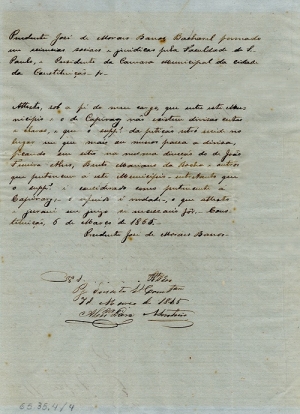 Prudente José de Moraes Barros Bacharel formado
em sciencias sociaes e juridicas pela Faculdade de S.
Paulo, e Presidente da Camara Municipal da cidade
da Constituição &.
Attesto, sob a fé de meu cargo, que entre este Mu-
nicipio e o de Capivary não existem divisas certas
e claras, e que o supp.e da petição retro reside no
lugar em que mais ou menos passa a divisa,
ficando em seu sitio na mesma direcção do de João
Ferreira Alves, Bento Mariano da Rocha e outros
que pertencem a este Municipio
o supp.e é considerado como pertencente a
Capivary: o referido é verdade, o que attesto
e jurarei em juizo se necessario fôr. Cons-
tituição, 6 de Março de 1865.
Prudente José de Moraes Barros
de Março de 1865
55.35.4/4